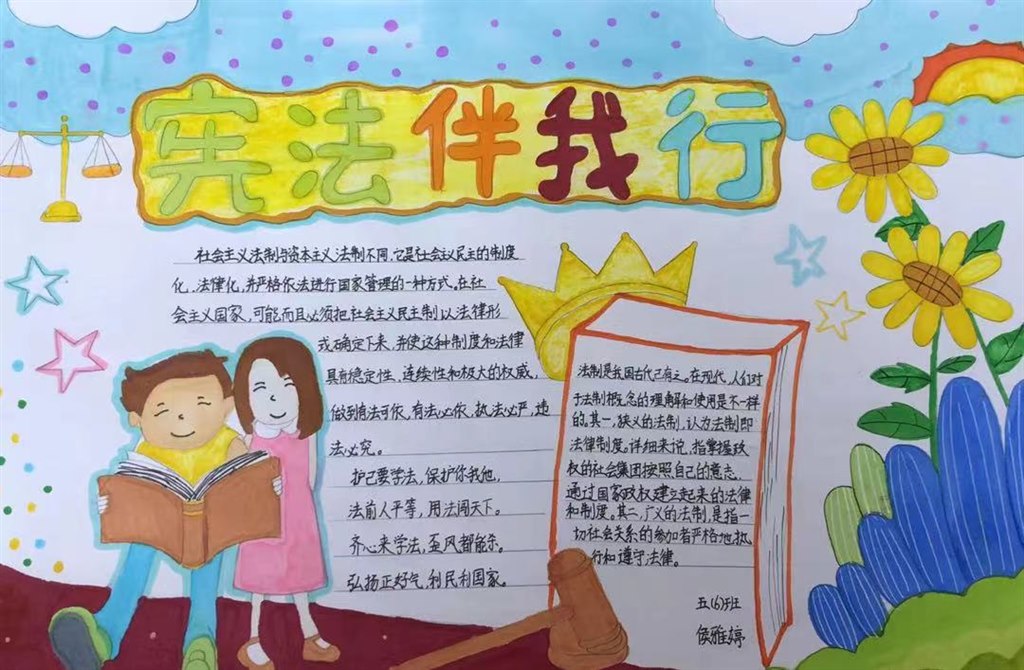 宪法伴我行
社会主义法制与资本主义法制不同,它是社会主义民主的制度
化、法律化,并严格依法进行国家管理的一种方式。在社
会主义国家,可能而且必须把社会主义民主制以法律形
式确定下来,并使这种制度和法律
具有稳定性、连续性和极大的权威,
做到有法可依,有法必依,执法必严,违
法必究。
护己要学法,保护你我他,
法前人平等,用法闯天下。
齐心来学法,歪风都能杀。
弘扬正好气,利民利国家。
法制是我国古代已有之。在现代,人们对
于法制概念的理解和使用是不一样
的。其一,狭义的法制,认为法制即
法律制度。详细来说,指掌握政
权的社会集团按照自己的意志、
通过国家政权建立起来的法律
和制度。其二,广义的法制,是指一
切社会关系的参加者严格地执
行和遵守法律。
五(6)班
侯雅婷